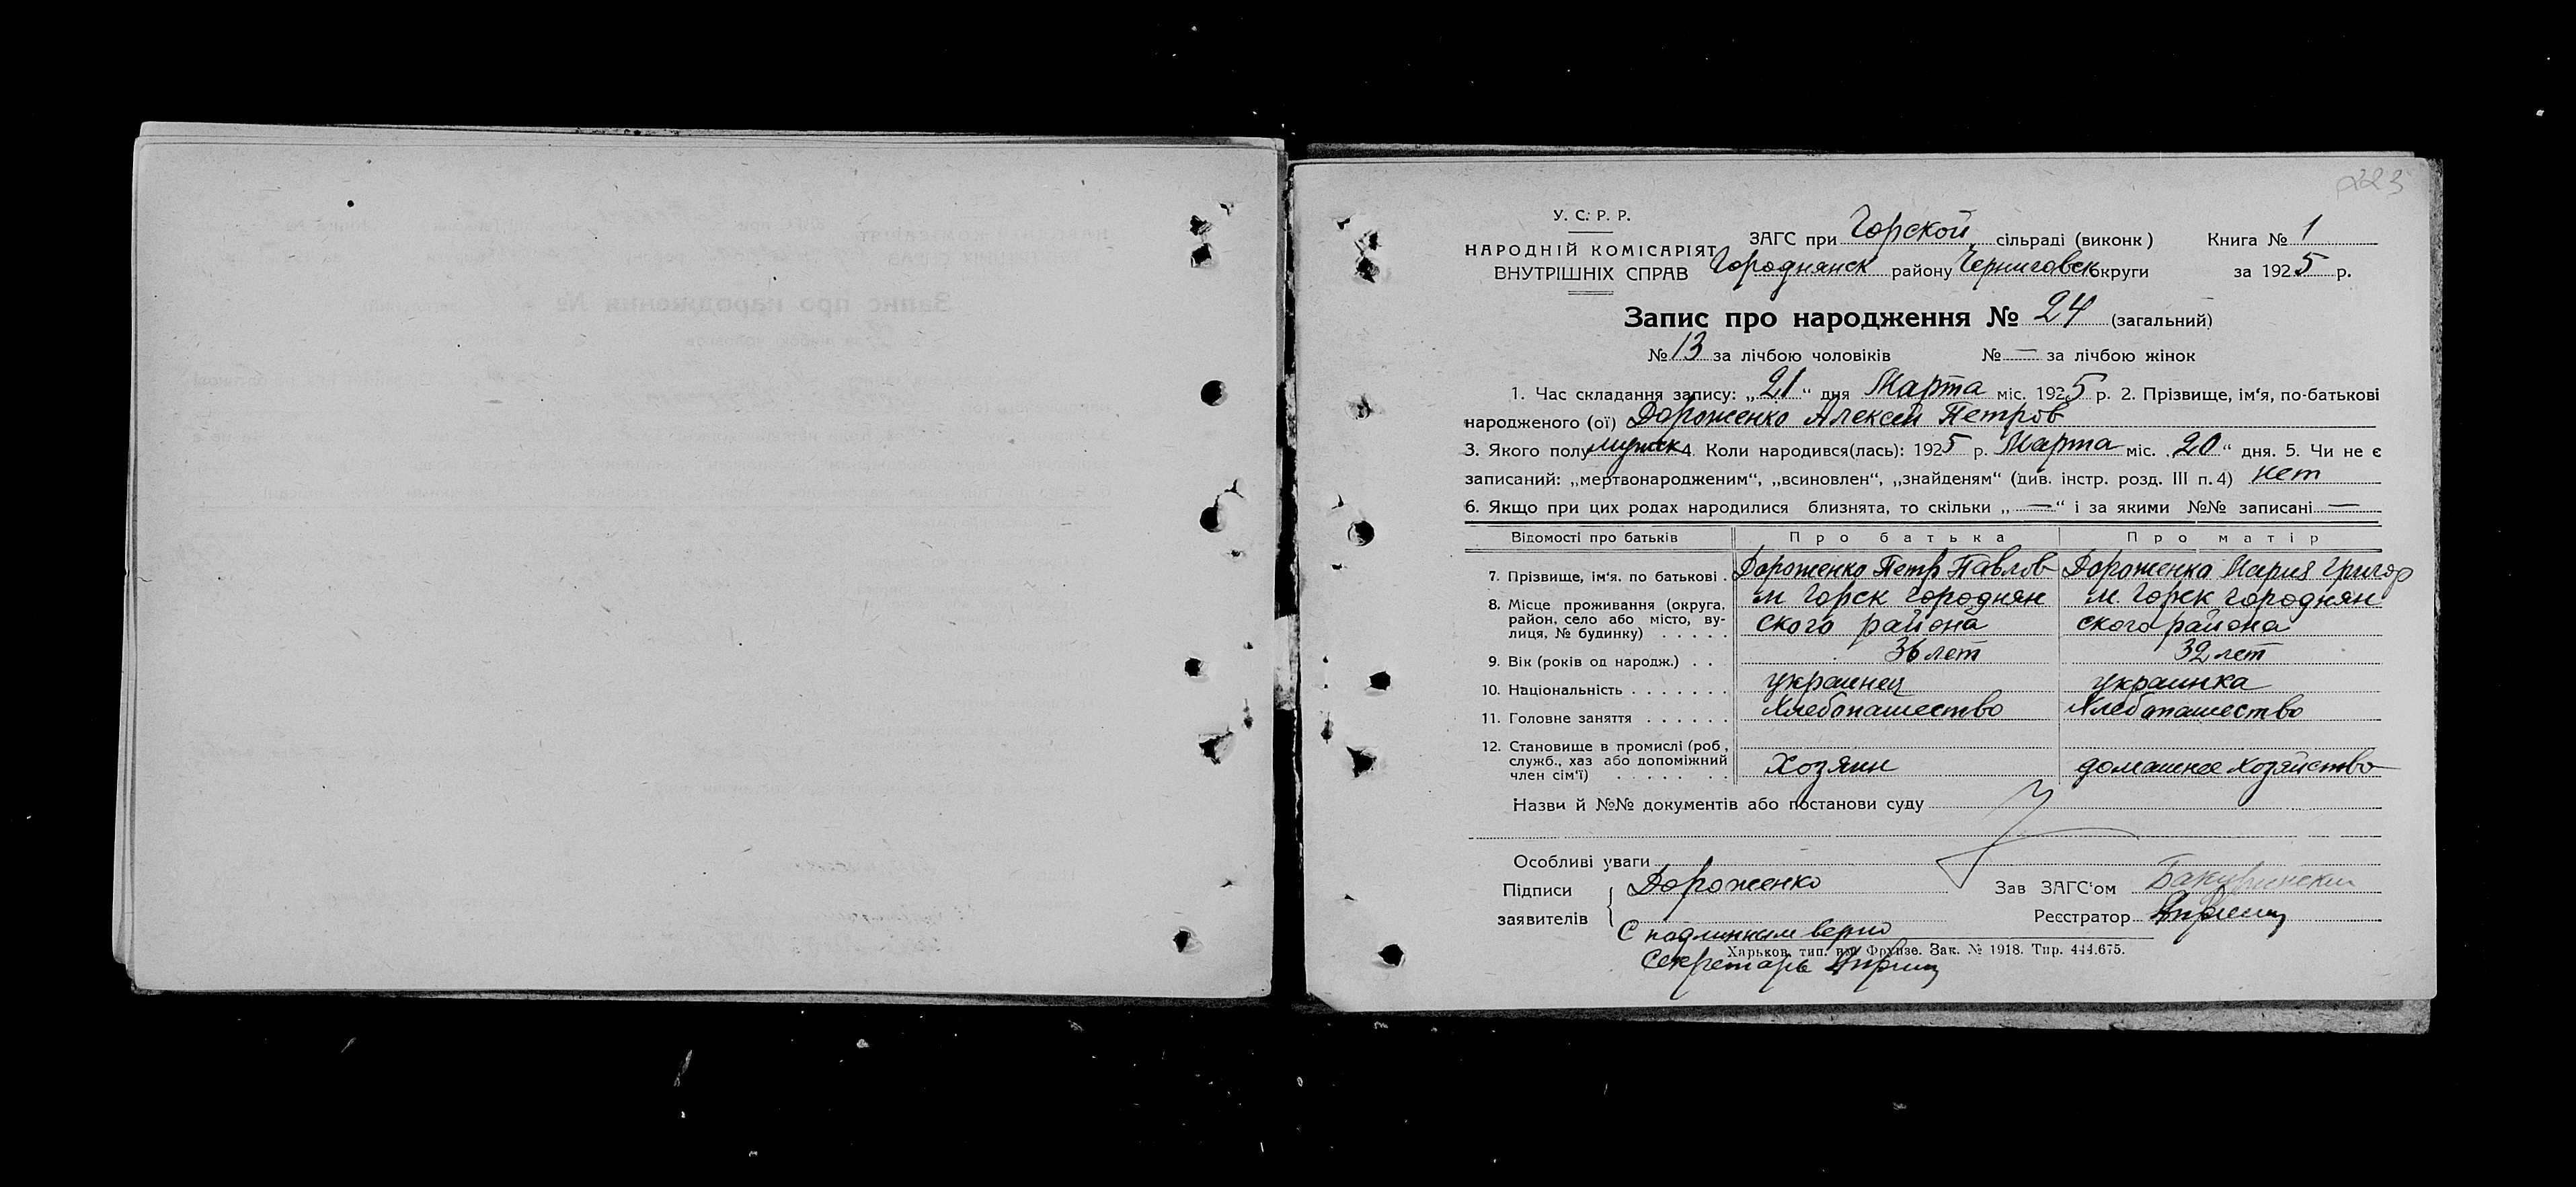 223
У. С. Р. Р.
НАРОДНІЙ КОМІСАРІЯТ
ВНУТРІШНІХ СПРАВ
ЗАГС при Горской сільраді (виконк) Книга № 1
Городнянск району Черниговск округи за 1925 р.
Запис про народження № 24 (загальний)
№ 13 за лічбою чоловіків № — за лічбою жінок
1. Час складання запису: „21“ дня Марта міс. 1925 р. 2. Прізвище, ім‘я, по-батькові
народженого (ої) Дороженко Алексей Петров
3. Якого полу мужск 4. Коли народився(лась): 1925 р. Марта міс. „20“ дня. 5. Чи не є
записаний: „мертвонародженим“, „всиновлен“, „знайденям“ (див. інстр. розд. III п. 4) нет
6. Якщо при цих родах народилися близнята, то скільки „—“ і за якими №№ записані —
Відомості про батьків Про батька Про матір
7. Прізвище, ім‘я. по батькові . Дороженко Петр Павлов Дороженко Мария Григор
8. Місце проживання (округа, м Горск Городнян м. Горск Городнян
район, село або місто, ву-
лиця, № будинку) . . . . . ского района ского района
9. Вік (років од народж.) . . 36 лет 32 лет
10. Національність . . . . . . . украинец украинка
11. Головне заняття . . . . . . Хлебопашество Хлебопашество
12. Становище в промислі (роб.,
служб., хаз або допоміжний
член сім‘ї) . . . . . . . Хозяин домашнее хозяйство
Назви й №№ документів або постанови суду
Особливі уваги
Підписи заявителів Дороженко
Зав ЗАГС‘ом
Реєстратор
С подлинным верно
Харьков, тип. им. Фрунзе. Зак. № 1918. Тир. 444.675.
Секретарь